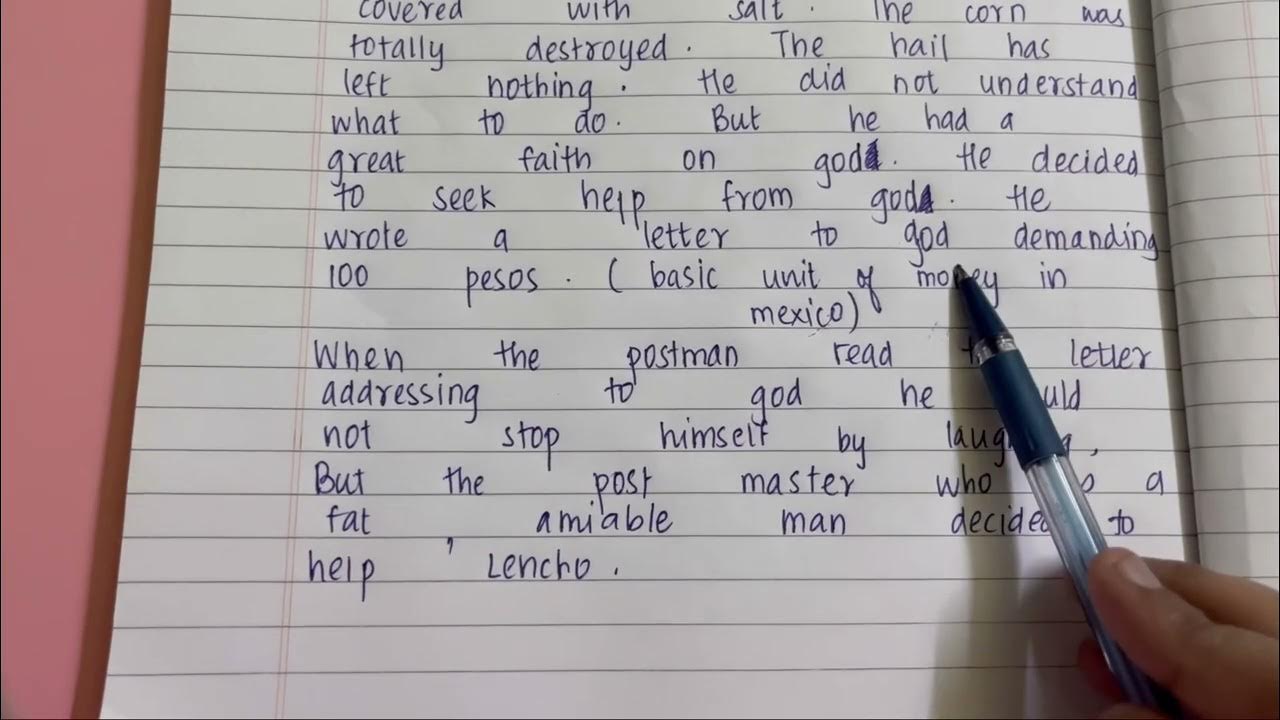 covered with salt. The corn was
totally destroyed. The hail has
left nothing. He did not understand
what to do. But he had a
great faith on god. He decided
to seek help from god. He
wrote a letter to god demanding
100 pesos. ( basic unit of money in
mexico)
When the postman read letter
addressing to god he
not stop himself by
But the post master who a
fat, amiable man decided to
help Lencho.